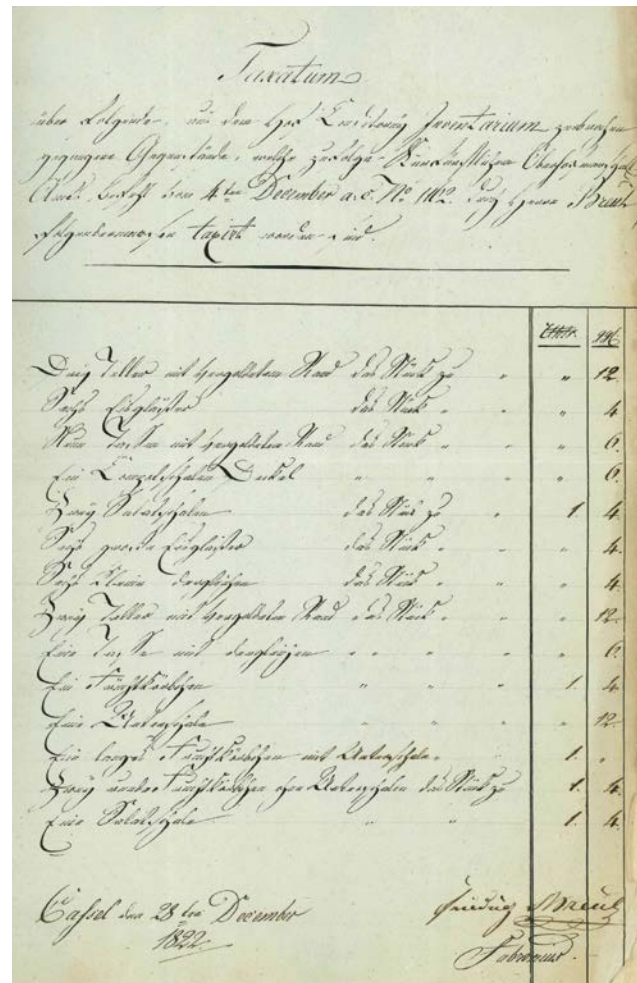 Taxatum
über folgende, aus dem Hof Conditorey Inventarium zerbrochen
gegangene Gegenstände, welche zufolge Kurfürstlichen Oberhofmarschall
Amts Befehl vom 4ten December a. c. No 1112. durch Herrn Breul
folgendermassen taxirt worden sind.
Rthlr. ggl
Drey Teller mit vergoldetem Rand das Stück zu " " 12.
Sechs Eisgläser das Stück " " 4.
Neun Tassen mit vergoldetem Rand das Stück " " " 6.
Ein Compotschalen Deckel " " " " 6.
Zwey Salatschalen das Stück zu " 1. 4.
Sechs grosse Eisgläser das Stück " " " 4.
Sechs kleine dergleichen das Stück " " " 4.
Zwey Teller mit vergoldetem Rand das Stück " " " 12.
Eine Tasse mit dergleichen " " " " 6.
Ein Fruchtkörbchen " " " 1. 4.
Eine Unterschale " " " " 12.
Ein langes Fruchtkörbchen mit Unterschale " 1. "
Zwey runde Fruchtkörbchen ohne Unterschalen das Stück zu 1. 4.
Eine Salatschale " " 1. 4.
Cassel den 28ten December
1822.
Breul
Fabronius